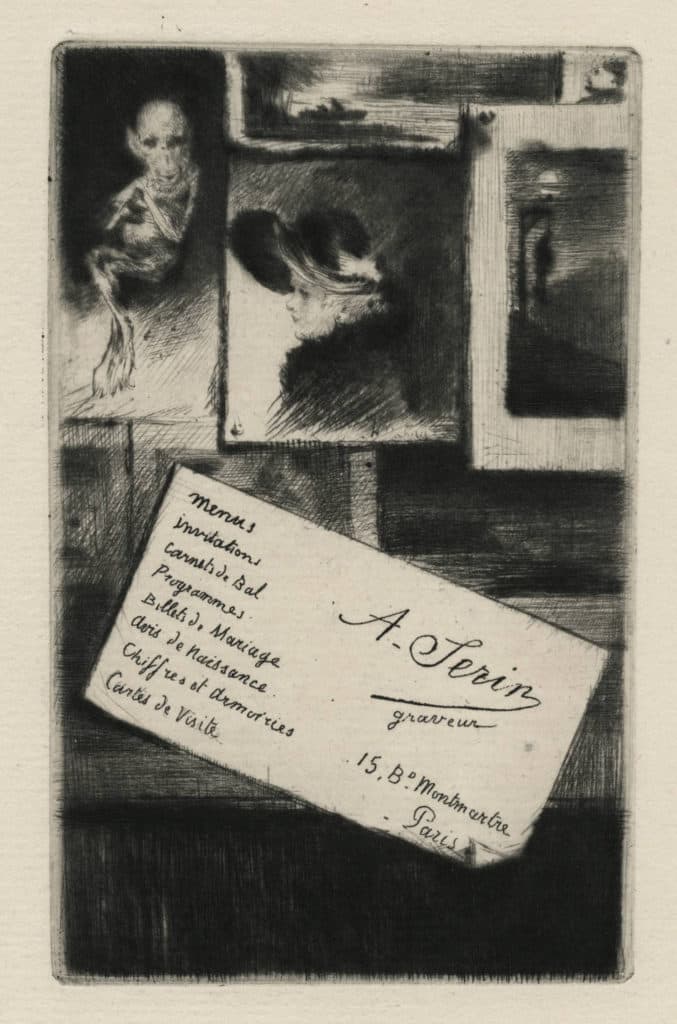 menus
invitations
Carnets de Bal
Programmes.
Billets de Mariage
Avis de Naissance.
Chiffres et Armoiries
Cartes de Visite.
A. Serin
graveur
15, Bᵈ Montmartre
- Paris -